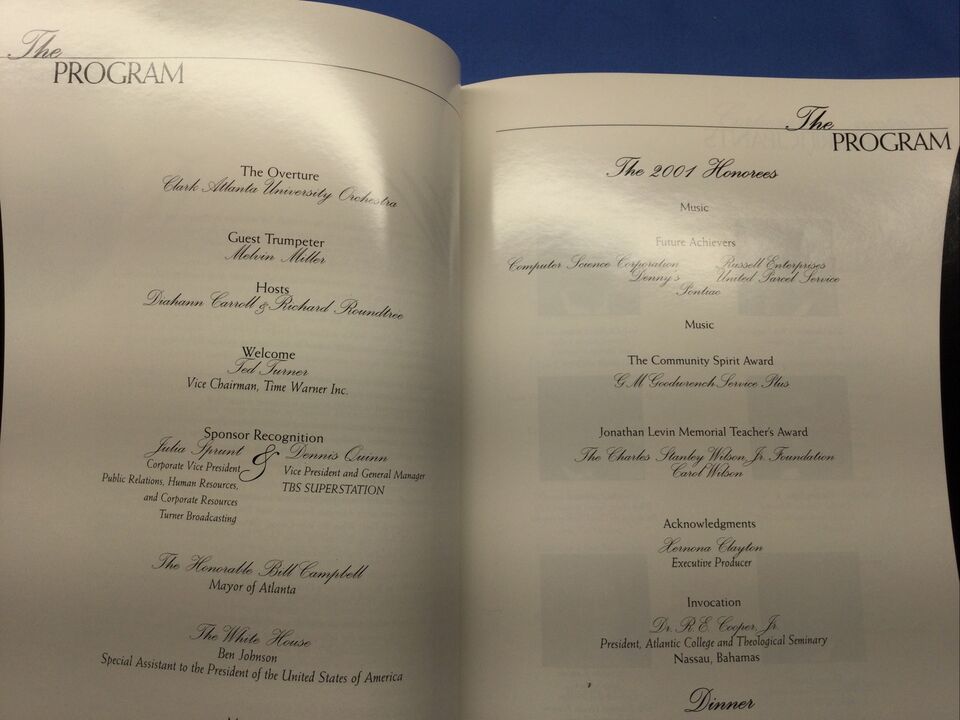 The
PROGRAM
The Overture
Clark Atlanta University Orchestra
Guest Trumpeter
Melvin Miller
Hosts
Diahann Carroll & Richard Roundtree
Welcome
Ted Turner
Vice Chairman, Time Warner Inc.
Sponsor Recognition
Julia Sprunt & Dennis Quinn
Corporate Vice President
Public Relations, Human Resources,
and Corporate Resources
Turner Broadcasting
Vice President and General Manager
TBS SUPERSTATION
The Honorable Bill Campbell
Mayor of Atlanta
The White House
Ben Johnson
Special Assistant to the President of the United States of America
The
PROGRAM
The 2001 Honorees
Music
Future Achievers
Computer Science Corporation Russell Enterprises
Denny's United Parcel Service
Pontiac
Music
The Community Spirit Award
G.M. Goodwrench Service Plus
Jonathan Levin Memorial Teacher's Award
The Charles Stanley Wilson, Jr. Foundation
Carol Wilson
Acknowledgments
Xernona Clayton
Executive Producer
Invocation
Dr. R.E. Cooper, Jr.
President, Atlantic College and Theological Seminary
Nassau, Bahamas
Dinner